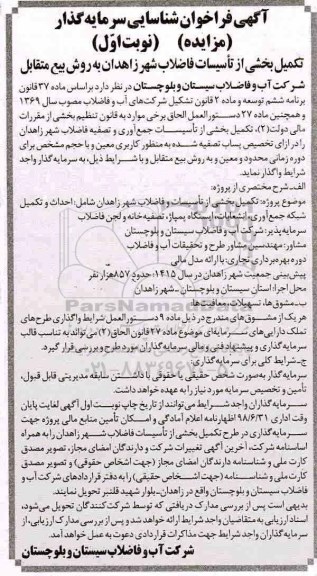 آگهی فراخوان شناسایی سرمایه‌گذار
(مزایده) (نوبت اوّل)
تکمیل بخشی از تأسیسات فاضلاب شهر زاهدان به روش بیع متقابل
شرکت آب و فاضلاب سیستان و بلوچستان در نظر دارد براساس ماده ۳۷ قانون
برنامه ششم توسعه و ماده ۲ قانون تشکیل شرکت‌های آب و فاضلاب مصوب سال ۱۳۶۹
و همچنین ماده ۲۷ دستورالعمل الحاق برخی موارد به قانون تنظیم بخشی از مقررات
مالی دولت(۲)، تکمیل بخشی از تأسیسات جمع‌آوری و تصفیه فاضلاب شهر زاهدان
را در ازای تخصیص پساب تصفیه شده به منظور کاربری معین و با حجم مشخص برای
دوره زمانی محدود و معین و به روش بیع متقابل و با شرایط ذیل، به سرمایه‌گذار واجد
شرایط واگذار نماید.
الف ـ شرح مختصری از پروژه:
موضوع پروژه: تکمیل بخشی از تأسیسات و فاضلاب شهر زاهدان شامل: احداث و تکمیل
شبکه جمع‌آوری، انشعابات، ایستگاه پمپاژ، تصفیه‌خانه و لجن فاضلاب
سرمایه‌پذیر: شرکت آب و فاضلاب سیستان و بلوچستان
مشاور: مهندسین مشاور طرح و تحقیقات آب و فاضلاب
دوره بهره‌برداری تجاری: با ارائه مدل مالی
پیش‌بینی جمعیت شهر زاهدان در سال ۱۴۱۵: حدود ۸۵۷ هزار نفر
محل اجرا: استان سیستان و بلوچستان ـ شهر زاهدان
ب ـ مشوق‌ها، تسهیلات، معافیت‌ها:
هر یک از مشوق‌های مندرج در ذیل ماده ۹ دستورالعمل شرایط واگذاری طرح‌های
تملک دارایی‌های سرمایه‌ای موضوع ماده ۲۷ قانون الحاق(۲) می‌تواند به تناسب قالب
سرمایه‌گذاری و پیشنهاد فنی و مالی سرمایه‌گذاران مورد طرح و بررسی قرار گیرد.
ج ـ شرایط کلی برای سرمایه‌گذاری:
سرمایه‌گذار به صورت شخص حقیقی یا حقوقی با داشتن سابقه مدیریتی قابل قبول،
تأمین و تخصیص سرمایه مورد نیاز را به عهده خواهد داشت.
سرمایه‌گذاران واجد شرایط می‌توانند از تاریخ چاپ نوبت اول آگهی لغایت پایان
وقت اداری ۹۸/۶/۳۱ اظهارنامه اعلام آمادگی و امکان تأمین منابع مالی پروژه جهت
سرمایه‌گذاری در طرح تکمیل بخشی از تأسیسات فاضلاب شهر زاهدان را به همراه
اساسنامه شرکت، آخرین آگهی تغییرات شرکت و دارندگان امضای مجاز، تصویر مصدق
کارت ملی و شناسنامه دارندگان امضای مجاز (جهت اشخاص حقوقی) و تصویر مصدق
کارت ملی و شناسنامه (جهت اشخاص حقیقی) را به دفتر قراردادهای شرکت آب و
فاضلاب سیستان و بلوچستان واقع در زاهدان ـ بلوار شهید قلنبر تحویل نمایند.
بدیهی است پس از بررسی مدارک دریافتی که توسط شرکت‌کنندگان تحویل می‌شود،
اسناد ارزیابی به متقاضیان واجد شرایط ارائه خواهد شد و پس از بررسی مدارک ارزیابی، از
سرمایه‌گذاران واجد شرایط جهت مذاکرات قراردادی دعوت به عمل خواهد آمد.
شرکت آب و فاضلاب سیستان و بلوچستان
ParsNamadData